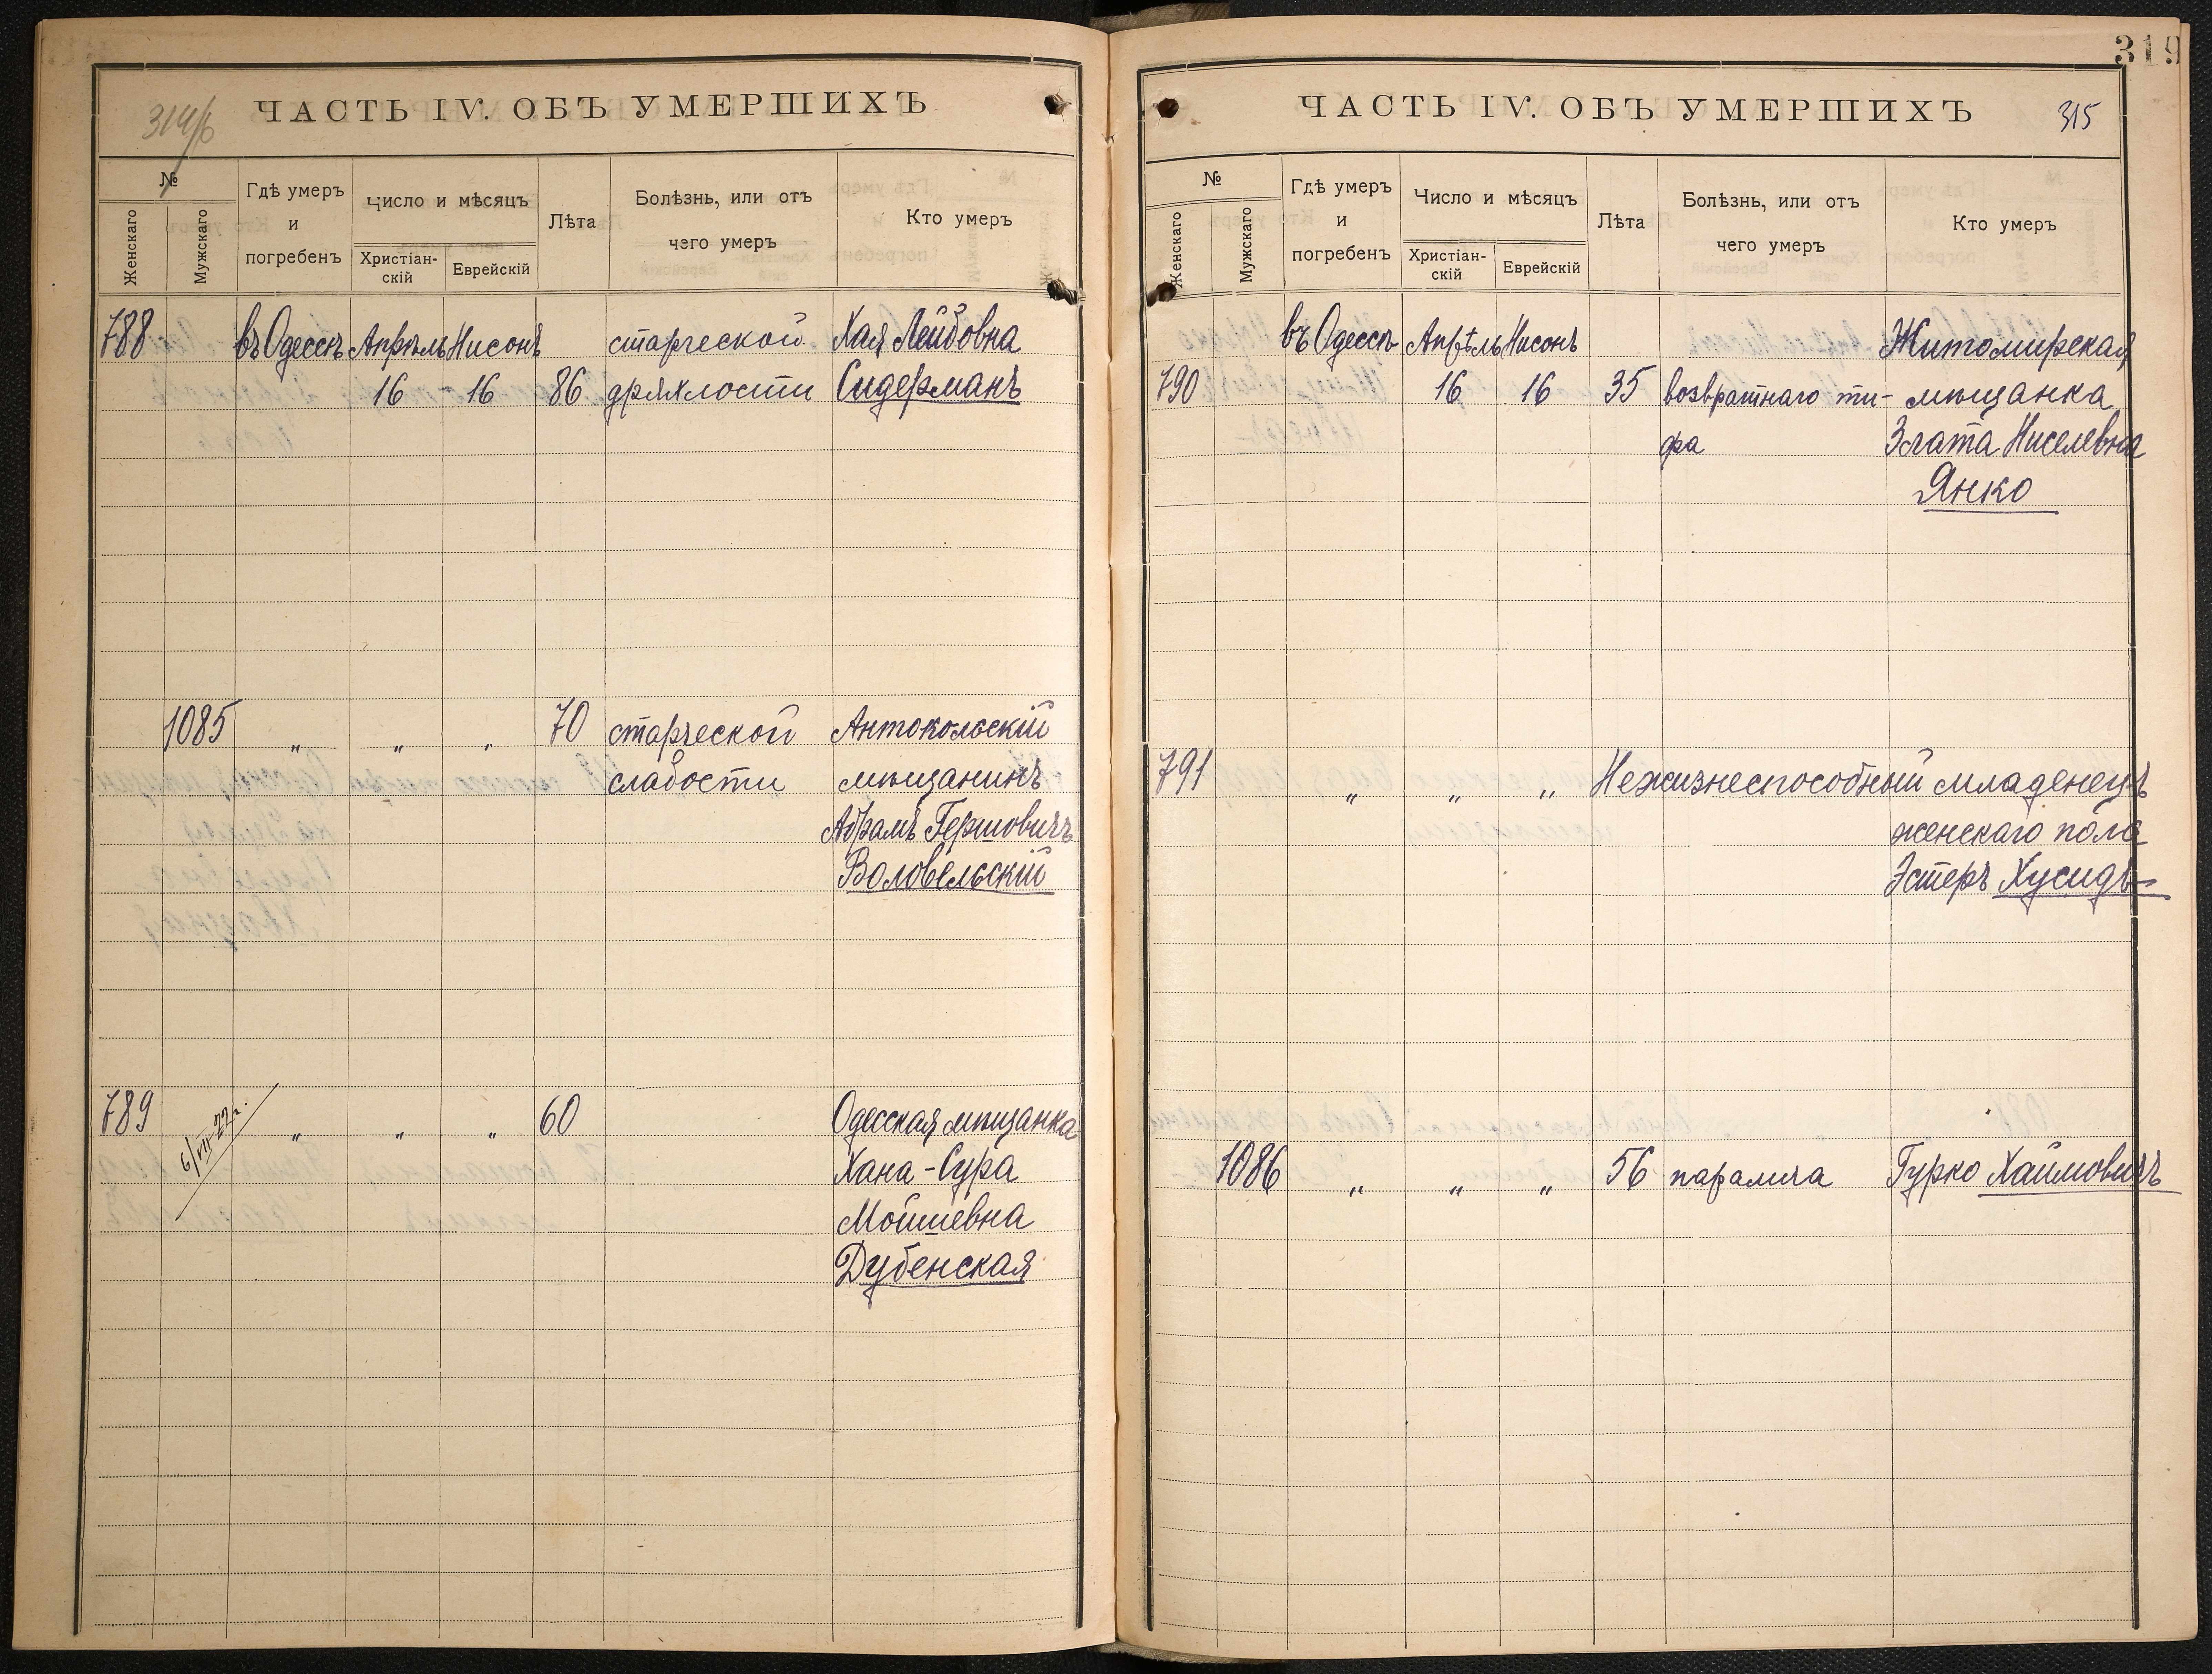 314/б
ЧАСТЬ IV. ОБЪ УМЕРШИХЪ
№
Женскаго
Мужскаго
Гдѣ умеръ
и
погребенъ
Число и мѣсяцъ
Христіан-
скій
Еврейскій
Лѣта
Болѣзнь, или отъ
чего умеръ
Кто умеръ
788 въ Одессѣ Апрѣль Нисонъ старческой Хая Лейбовна
16 - 16 86 дряхлости Сидерманъ
1085 „ „ „ 70 старческой Антокольскій
слабости мѣщанинъ
Абрамъ Гершовичъ
Воловельскій
789 6/VII-22г. „ „ „ 60 Одесская мѣщанка
Хана-Сура
Мойшевна
Дубенская
319
ЧАСТЬ IV. ОБЪ УМЕРШИХЪ 315
№
Женскаго
Мужскаго
Гдѣ умеръ
и
погребенъ
Число и мѣсяцъ
Христіан-
скій
Еврейскій
Лѣта
Болѣзнь, или отъ
чего умеръ
Кто умеръ
въ Одессѣ Апрѣль Нисонъ Житомирская
790 16 16 35 возвратнаго ти- мѣщанка
фа Злата Ниселевна
Янко
791 „ „ „ Нежизнеспособный младенецъ
женскаго пола
Эстеръ Хусидъ
1086 „ „ „ 56 паралича Гурко Хаимовичъ